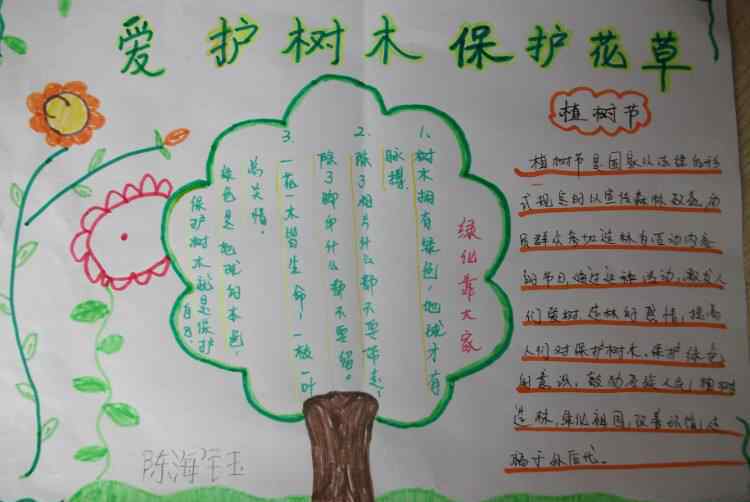 爱护树木保护花草
植树节
植树节是国家以法律的形
式规定的以宣传森林效益,动
员群众参加造林为活动内容
的节日,通过这种活动,激发人
们爱树造林的感情,提高
人们对保护树木,保护绿色
的意识,鼓励各族人民,植树
造林,绿化祖国,改善环境,造
福于外后代。
绿化靠大家
1、树木拥有绿色,地球才有
脉搏
2、除了相片什么都不要带走,
除了脚印什么都不要留。
3、一花一木皆生命,一枝一叶
总关情。
绿色是地球的本色,
保护树木就是保护
自己